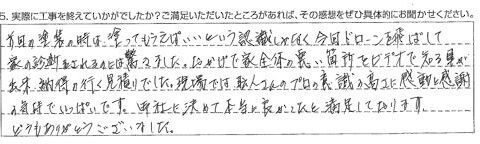 5. 実際に工事を終えていかがでしたか？ご満足いただいたところがあれば、その感想をぜひ具体的にお聞かせください。
前回の塗装の時は、塗ってもらえばいいという認識しかなく今回ドローンを飛ばして
家の診断をされるのには驚きました。おかげで家全体の悪い箇所をビデオで知る事が
出来、納得の行く見積りでした。現場では職人さんのプロの意識の高さに感動と感謝
の気持でいっぱいです。御社に決めて本当に良かったと満足しております。
どうもありがとうございました。